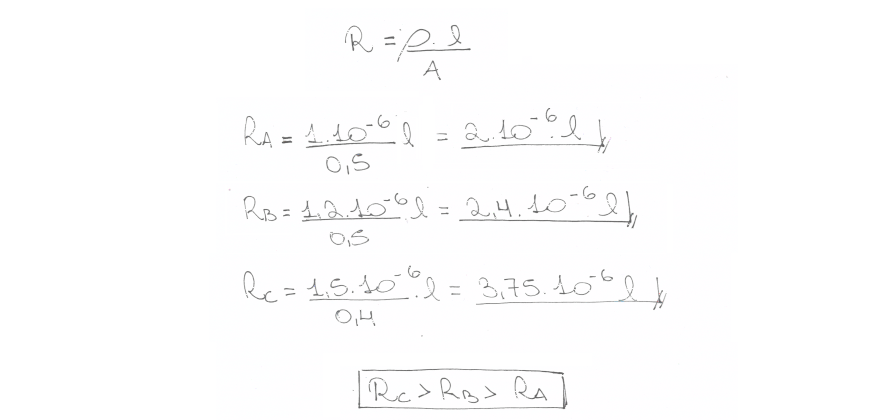 R = ρ. l / A
RA = 1.10⁻⁶ l / 0,5 = 2.10⁻⁶. l
RB = 1,2.10⁻⁶. l / 0,5 = 2,4. 10⁻⁶ l
RC = 1,5.10⁻⁶. l / 0,4 = 3,75. 10⁻⁶ l
RC > RB > RA